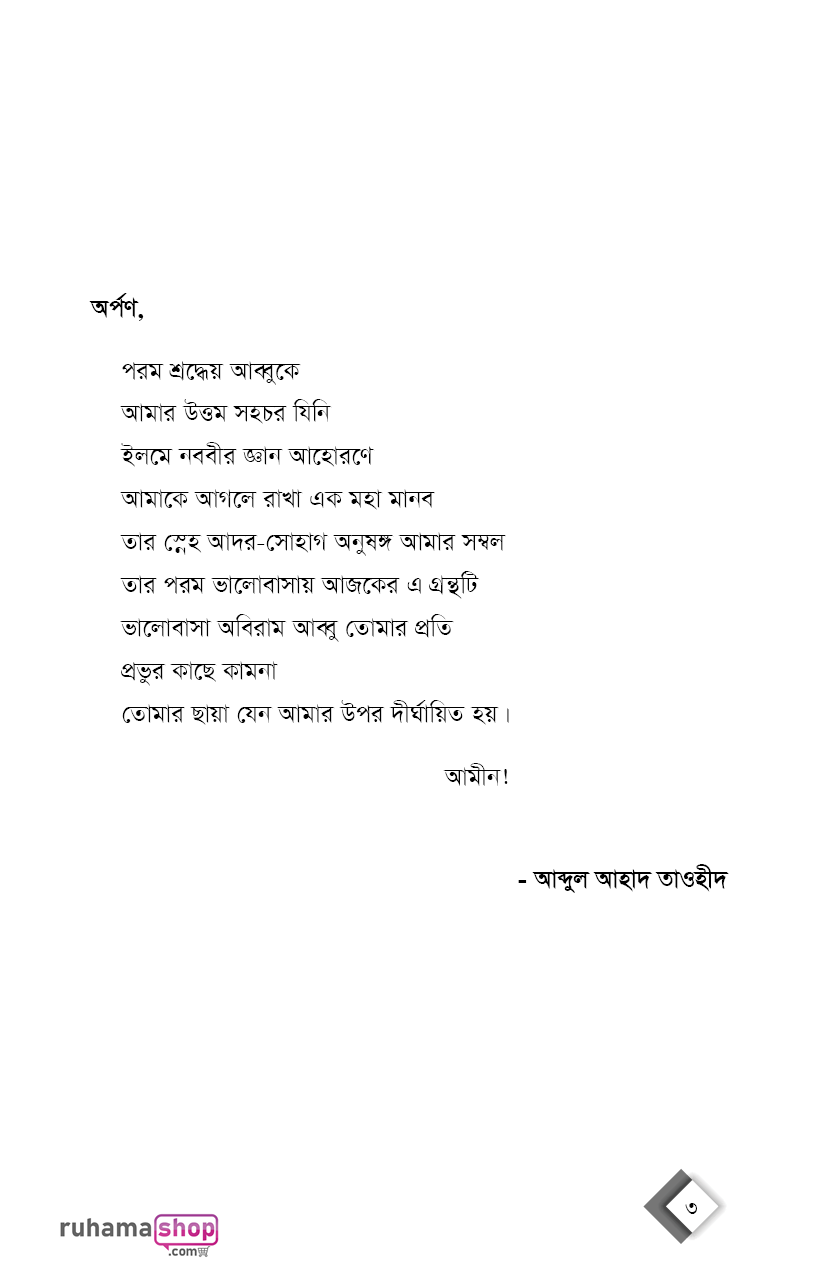 অর্পণ,
পরম শ্রদ্ধেয় আব্বুকে
আমার উত্তম সহচর যিনি
ইলমে নববীর জ্ঞান আহোরণে
আমাকে আগলে রাখা এক মহা মানব
তার স্নেহ আদর-সোহাগ অনুষঙ্গ আমার সম্বল
তার পরম ভালোবাসায় আজকের এ গ্রন্থটি
ভালোবাসা অবিরাম আব্বু তোমার প্রতি
প্রভুর কাছে কামনা
তোমার ছায়া যেন আমার উপর দীর্ঘায়িত হয়।
আমীন!
- আব্দুল আহাদ তাওহীদ
৩
ruhamashop
.com